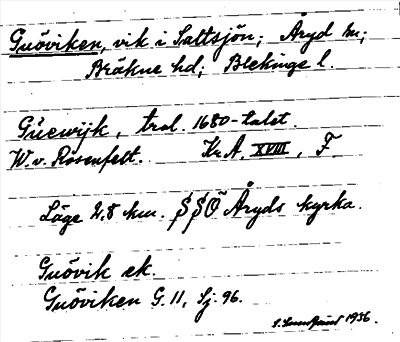 Guöviken, vik i Saltsjön; Åryd sn;
Bräkne hd; Blekinge l.
Güewijk, trol. 1680-talet.
W. v. Rosenfelt. Kr.A. XVIII, F.
Läge 2,8 km. SSO Åryds kyrka.
Guövik ek.
Guöviken G. 11, Sj. 96.
1936.